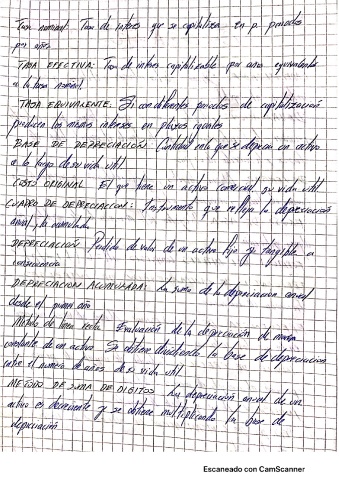 Tasa nominal: Tasa de interes que se capitaliza en p periodos
por año
TASA EFECTIVA: Tasa de interes capitalizable por año equivalente
a la tasa nominal.
TASA EQUIVALENTE: Si con diferentes periodos de capitalización
producen los mismos intereses en plazos iguales
BASE DE DEPRECIACIÓN Cantidad en la que se deprecia un activo
a lo largo de su vida util
COSTO ORIGINAL El que tiene un activo su vida util
CUADRO DE DEPRECIACION: Instrumento que refleja la depreciación
anual, la acumulada
DEPRECIACIÓN Perdida de valor de un activo fijo y tangible a
consecuencia
DEPRECIACION ACUMULADA: La suma de la depreciacion anual
desde el primer año
Metodo de linea recta Evaluación de la depreciación de manera
constante de un activo. Se obtiene dividiendo la base de depreciacion
entre el numero de años de su vida util
METODO DE SUMA DE DIGITOS La depreciación anual de un
activo es decreciente y se obtiene multiplicando la base de
depreciación
Escaneado con CamScanner